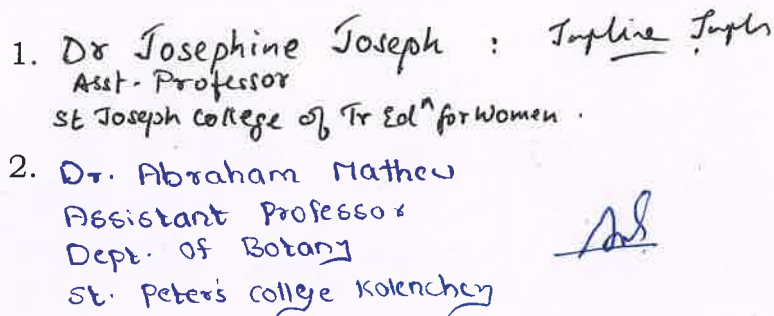 1. Dr Josephine Joseph :
Asst. Professor
St Joseph College of Tr Edn for Women.
2. Dr. Abraham Mathew
Assistant Professor
Dept. of Botany
St. Peter's College Kolenchery